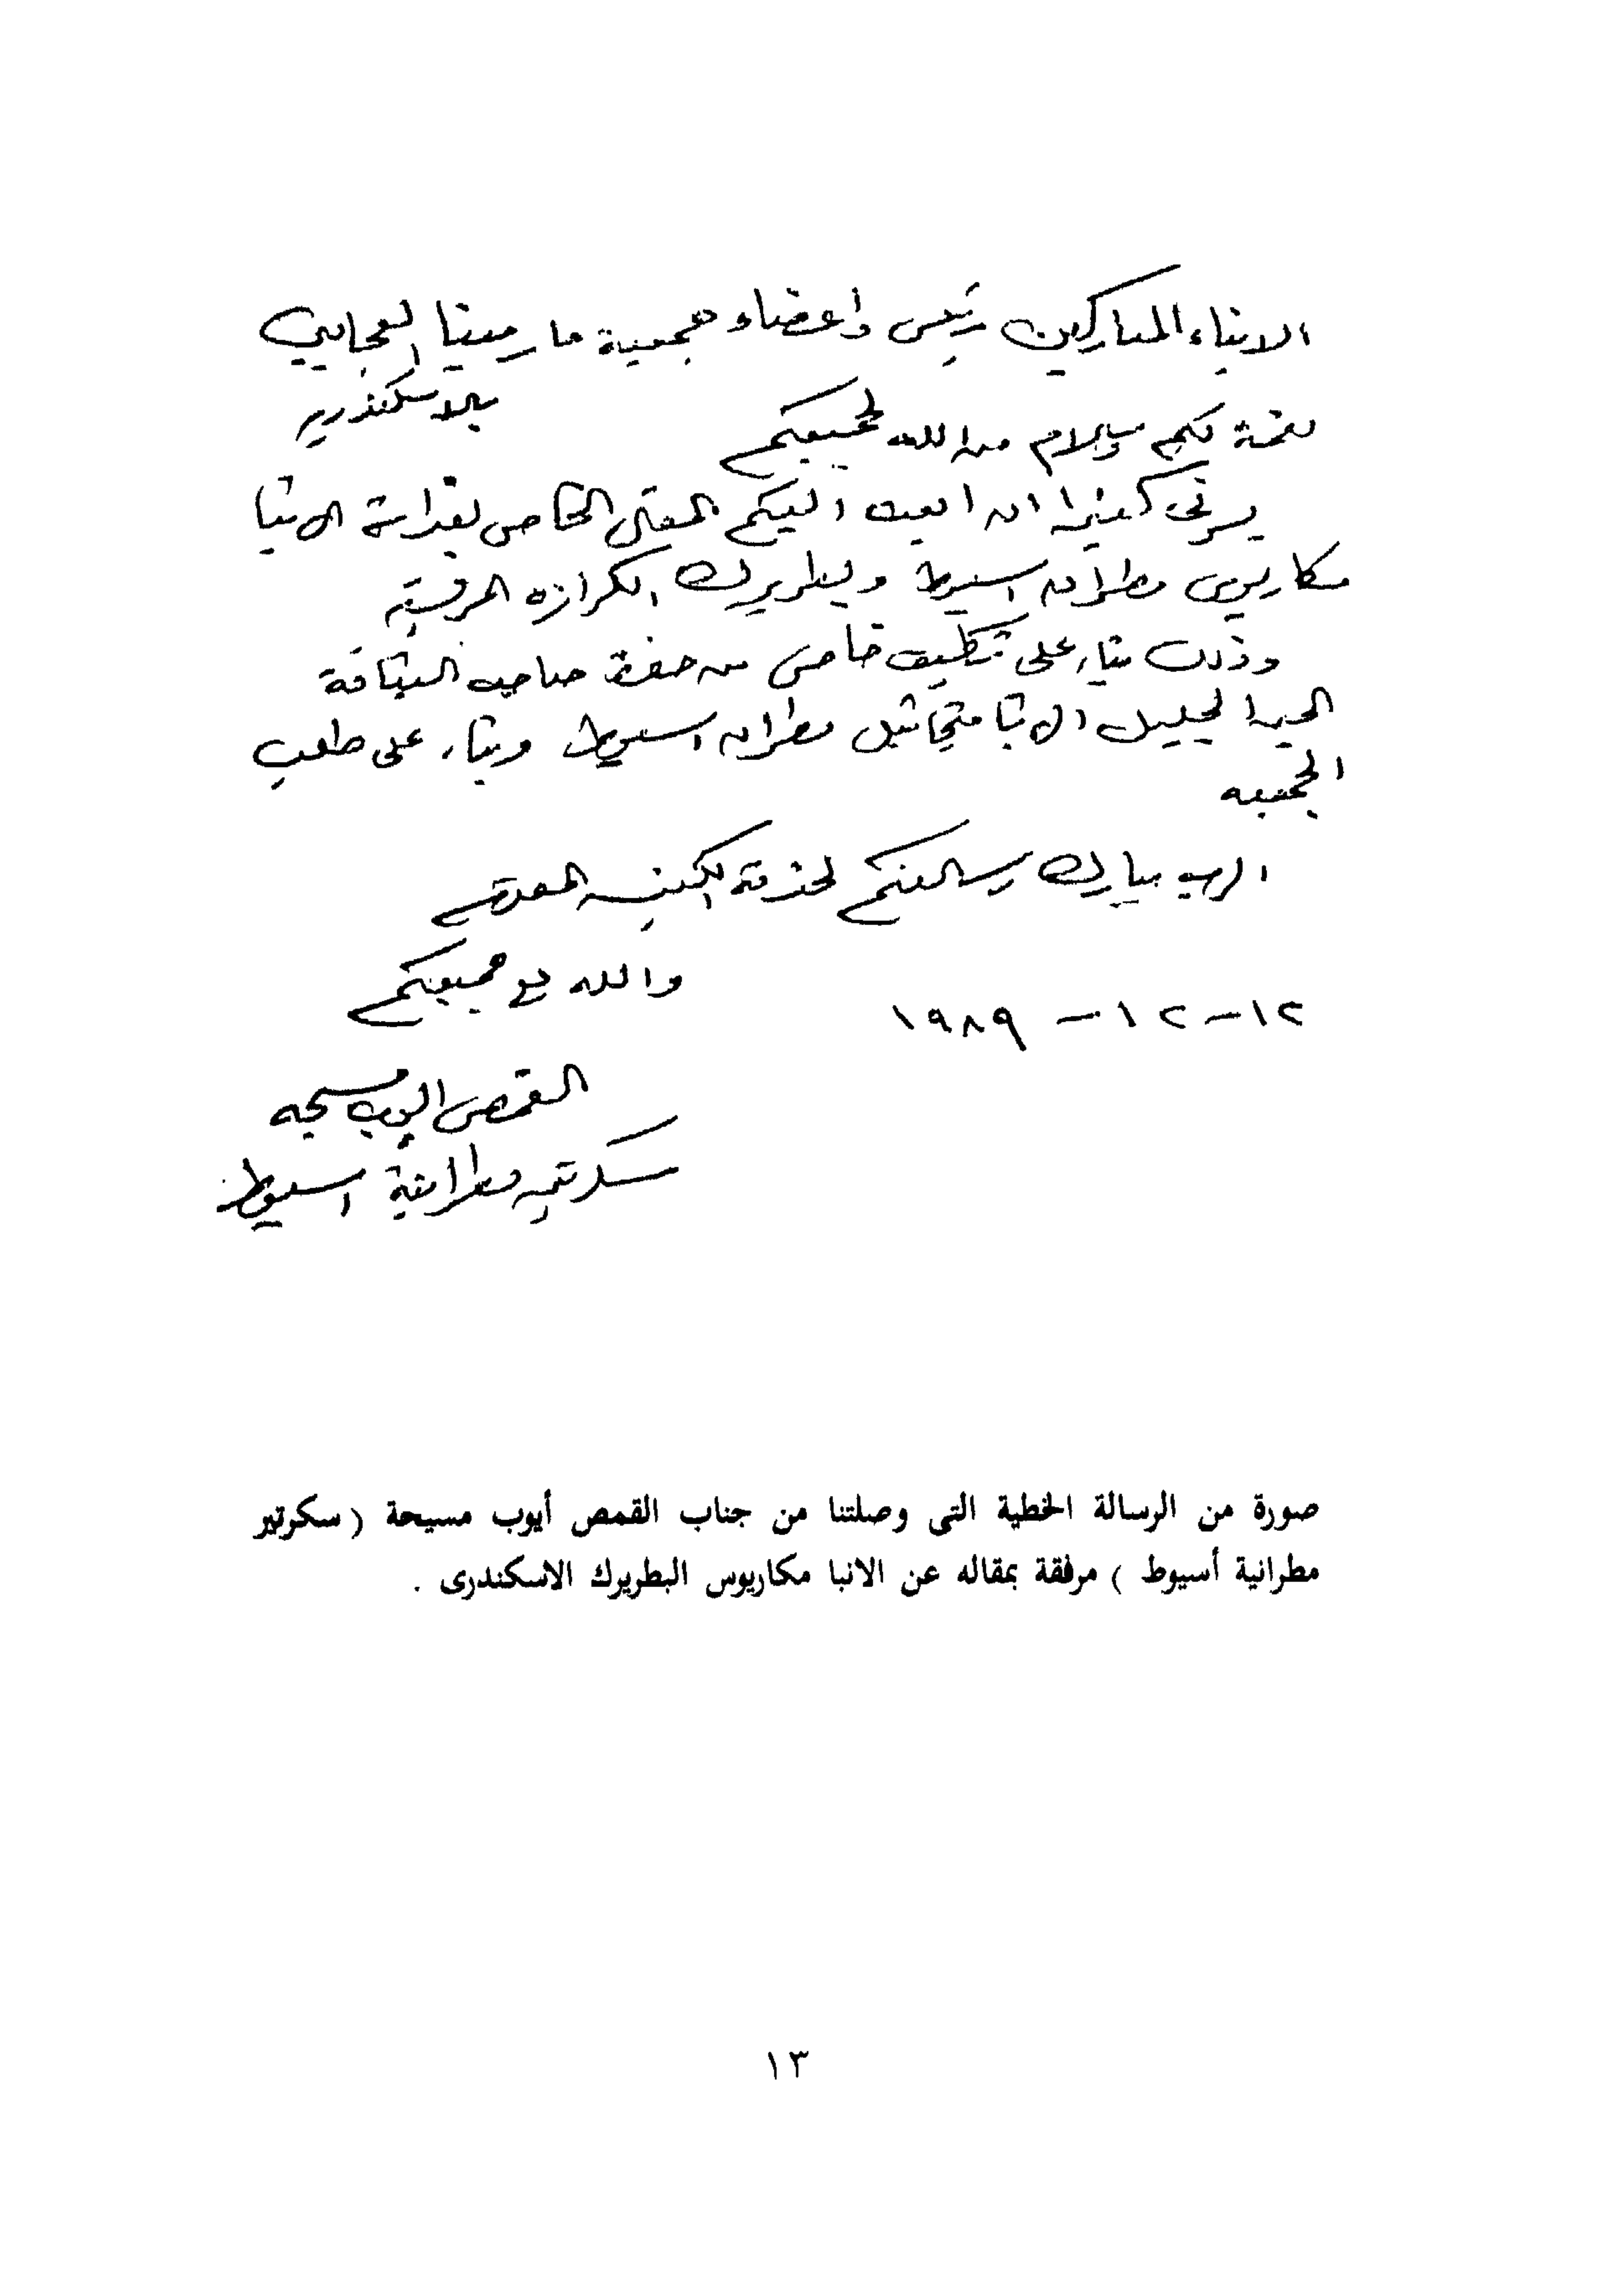 الابناء المباركين رئيس وأعضاء جمعية مار مينا العجايبي
بالاسكندريه
نعمة لكم وسلام من الله لجميعكم
يسرنى كثيرا ان ابعث اليكم المقال الخاص بقداسة الانبا
مكاريوس مطران اسيوط وبطريرك الكرازه المرقسيه
وذلك بناء على تكليف خاص من حضرة صاحب النيافة
الحبر الجليل الانبا ميخائيل مطران اسيوط وبناء على طلب
الجمعيه
الرب يبارك رسالتكم لخدمة الكنيسه المقدسه
والله مع جميعكم
١٢ - ١٢ - ١٩٨٩
القمص ايوب مسيحه
سكرتير مطرانية اسيوط
صورة من الرسالة الخطية التى وصلتنا من جناب القمص أيوب مسيحة ( سكرتير
مطرانية أسيوط ) مرفقة بمقاله عن الانبا مكاريوس البطريرك الاسكندرى .
١٣